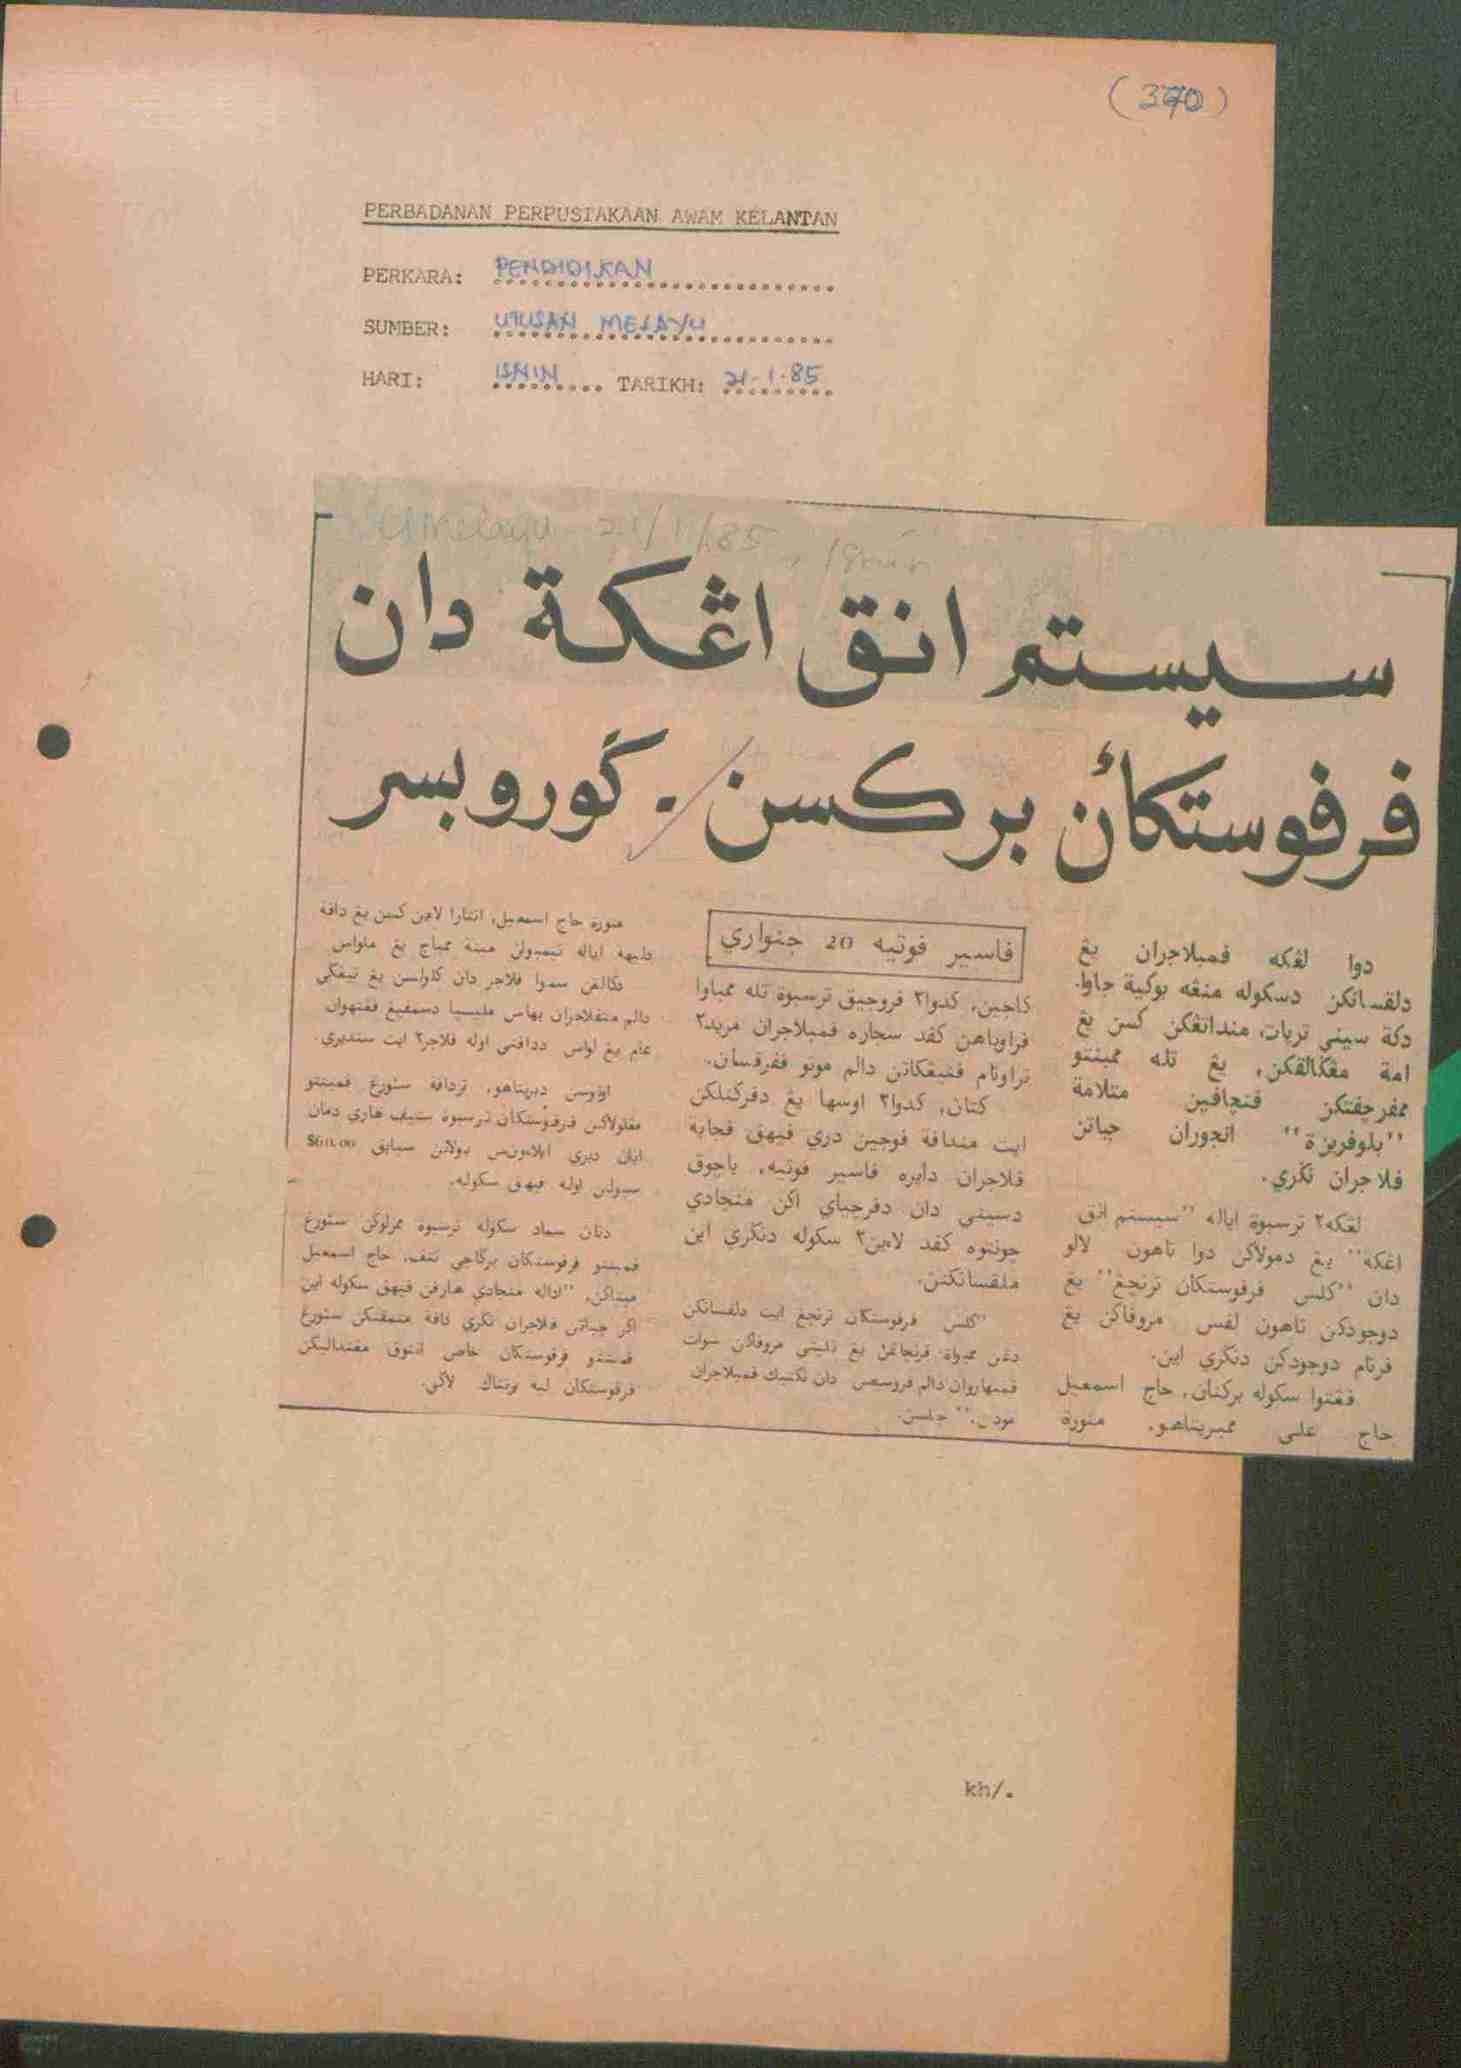 (370)
PERBADANAN PERPUSTAKAAN AWAM KELANTAN
PERKARA: PENDIDIKAN
SUMBER: UTUSAN MELAYU
HARI: ISNIN TARIKH: 21-1-85
U Melayu 21/1/85, Isnin
سيستم انق اڠكة دان
ڤرڤوستكاٴن بركسن ⁄. ڬورو بسر
دوا لڠكه ڤمبلاجران يڠ
دلقسانكن دسكوله منڠه بوكية جاوا٬
دكة سيني تربات٬ منداتڠكن كسن يڠ
امة مڠڬالقكن٬ يڠ تله ممبنتو
ممڤرچڤتكن ڤنچاڤين متلامة
''بلوڤرينة'' انجوران جباتن
ڤلاجران نڬري.
لڠكه٢ ترسبوة اياله ''سيستم انق
اڠكه'' يڠ دمولاكن دوا تاهون لالو
دان ''كلس ڤرڤوستكان ترنچڠ'' يڠ
دوجودكن تاهون لڤس مروڤاكن يڠ
ڤرتام دوجودكن دنڬري اين.
ڤڠتوا سكوله بركنان٬ حاج اسمعيل
حاج علي ممبريتاهو٬ منورة
ڤاسير ڤوتيه 20 جنواري
كاجين٬ كدوا٢ ڤروجيق ترسبوة تله ممباوا
ڤراوباهن كڤد سجاره ڤمبلاجران مريد٢
تراوتام ڤنيڠكاتن دالم موتو ڤڤرقسان.
كتان٬ كدوا٢ اوسها يڠ دڤركنلكن
ايت منداڤة ڤوجين دري ڤيهق ڤجابة
ڤلاجران دايره ڤاسير ڤوتيه٬ باچوق
دسيني دان دڤرچياي اكن منجادي
چونتوه كڤد لاين٢ سكوله دنڬري اين
ملقسانكنن.
''كلس ڤرڤوستكان ترنچڠ ايت دلقسانكن
دڠن ممبواة ڤرنچاڠن يڠ تليتي مروڤاكن سوات
ڤمبهاروان دالم ڤروسيس دان تكنيك ڤمبلاجران
مودن٬'' جلسن.
منورة حاج اسمعيل٬ انتارا لاين كسن يڠ داڤة
دليهة اياله تيمبولن مينة ممباچ يڠ ملواس
دكالڠن سموا ڤلاجر دان كاواسن يڠ تيڠڬي
دالم منڤلاجران بهاس مليسيا دسمڤيڠ ڤڠتهوان
عام يڠ لواس دداڤتي اوله ڤلاجر٢ ايت سنديري.
اوتوسن دبريتاهو٬ ترداڤة سئورڠ ڤمبنتو
مڠلولاكن ڤرڤوستكان ترسبوة ستيڤ هاري دمان
ايان دبري ايلاونس بولانن سباڽق $60.00
سبولن اوله ڤيهق سكوله.
دتان سماد سكوله ترسبوة ممرلوكن سئورڠ
ڤمبنتو ڤرڤوستكان برڬاجي تتڤ٬ حاج اسمعيل
مپتاكن٬ ''اداله منجادي هارڤن ڤيهق سكوله اين
اڬر جباتن ڤلاجران نڬري داڤة منمڤتكن سئورڠ
ڤمبنتو ڤرڤوستكان خاص انتوق مڠنداليكن
ڤرڤوستكان لبه برتناڬ لاڬي.
kh/.